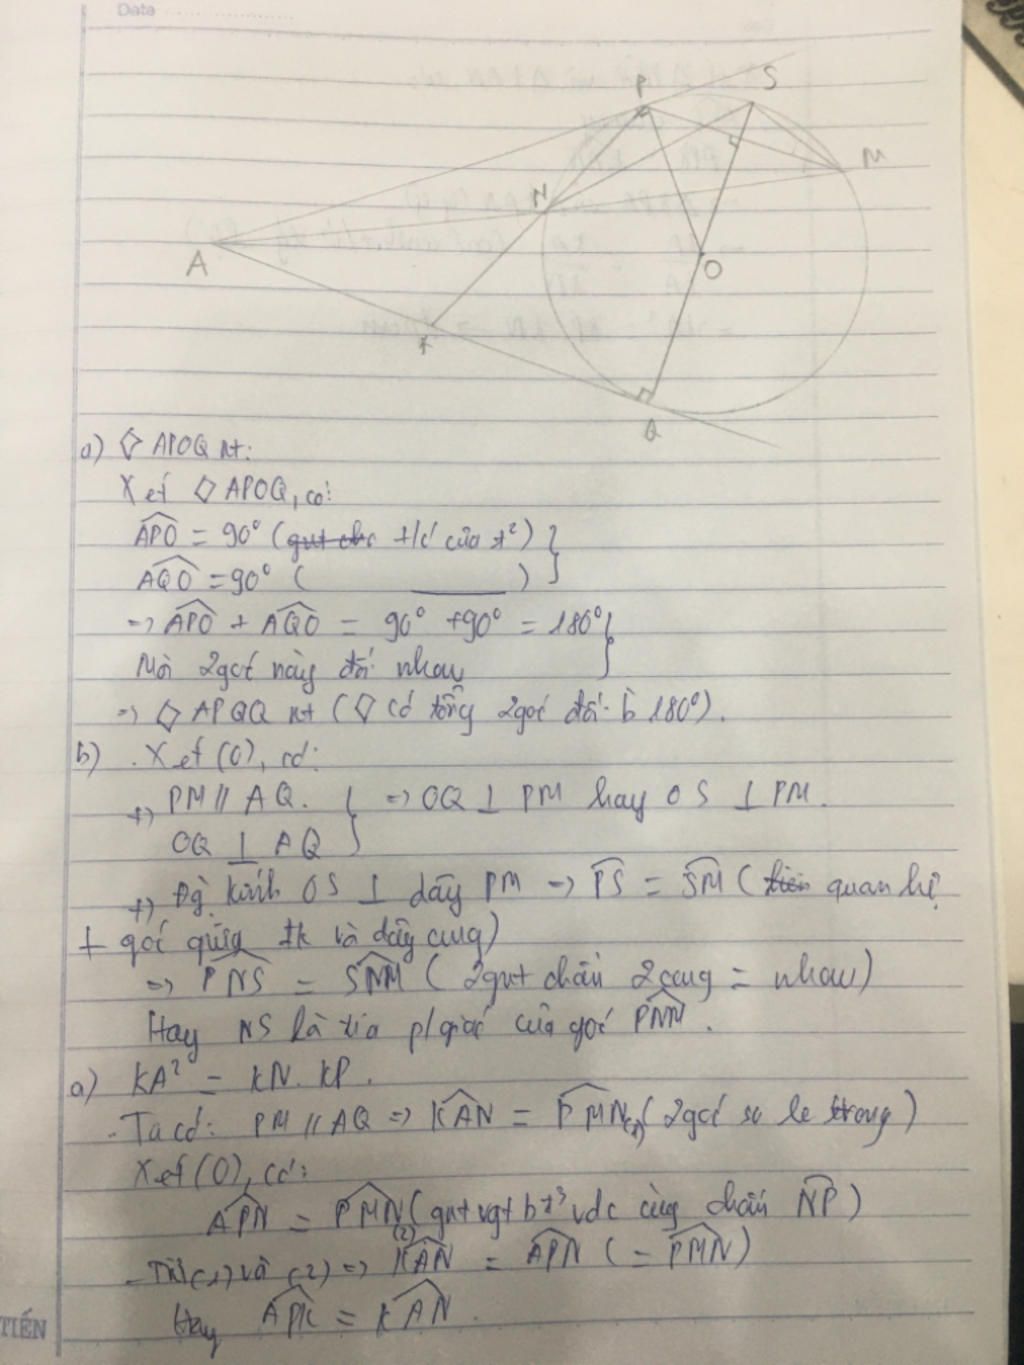 Date
P
S
M
N
A
O
K
Q
a) ◇ APOQ nt:
Xét ◇ APOQ, có:
APO = 90° (gnt chc t/c của t²)
AQO = 90° ( ——— )
=> APO + AQO = 90° + 90° = 180°
Mà 2góc này đối nhau
=> ◇ APOQ nt (◇ có tổng 2góc đối = 180°).
b) . Xét (O), có:
+) PM // AQ. => OQ ⊥ PM hay OS ⊥ PM.
OQ ⊥ AQ
+) Đg kính OS ⊥ dây PM => PS = SM ( quan hệ
⊥ góc giữa đk và dây cung)
=> PNS = SNM ( 2gnt chắn 2cung = nhau)
Hay NS là tia p/giác của góc PNM.
a) KA² = KN. KP.
- Ta có: PM // AQ => KAN = PMN (1) ( 2góc so le trong )
Xét (O), có:
APN = PMN (2) ( gnt vgt bt³ vdc cùng chắn NP )
- Từ (1) và (2) => KAN = APN ( = PMN )
Hay APK = KAN.
TIẾN